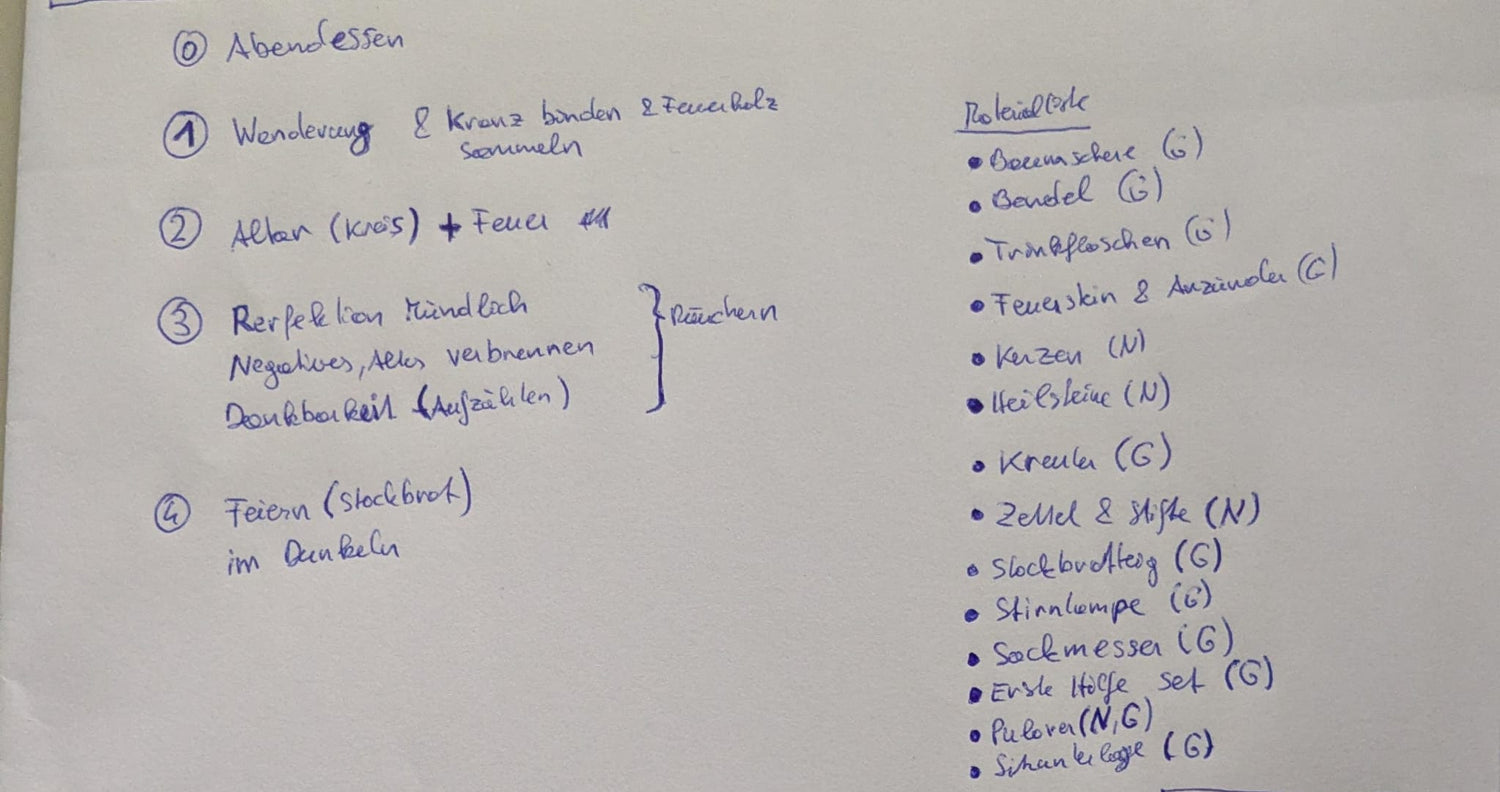 ⓪ Abendessen
① Wanderung & Kranz binden & Feuerholz
sammeln
② Altar (Kreis) + Feuer
③ Rerfektion Mündlich
Negatives, Altes verbrennen
Dankbarkeit (Aufzählen)
} Räuchern
④ Feiern (Stockbrot)
im Dunkeln
Materialliste
• Baumschere (G)
• Bendel (G)
• Trinkflaschen (G)
• Feuerstein & Anzünder (G)
• Kerzen (N)
• Heilsteine (N)
• Kräuter (G)
• Zettel & Stifte (N)
• Stockbrotteig (G)
• Stirnlampe (G)
• Sackmesser (G)
• Erste Hilfe set (G)
• Pulover (N, G)
• (G)